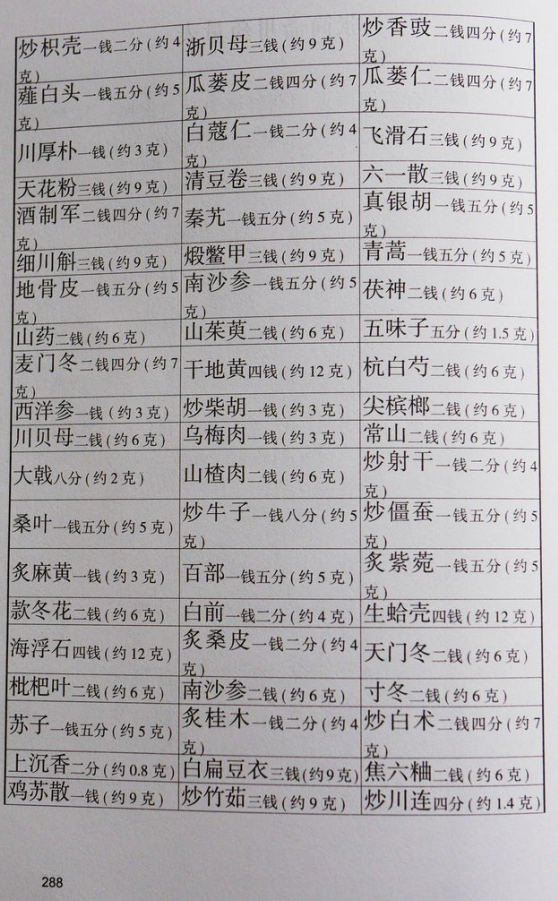 炒枳壳一钱二分(约4克) 浙贝母三钱(约9克) 炒香豉二钱四分(约7克)
薤白头一钱五分(约5克) 瓜蒌皮二钱四分(约7克) 瓜蒌仁二钱四分(约7克)
川厚朴一钱(约3克) 白蔻仁一钱二分(约4克) 飞滑石三钱(约9克)
天花粉三钱(约9克) 清豆卷三钱(约9克) 六一散三钱(约9克)
酒制军二钱四分(约7克) 秦艽一钱五分(约5克) 真银胡一钱五分(约5克)
细川斛三钱(约9克) 煅鳖甲三钱(约9克) 青蒿一钱五分(约5克)
地骨皮一钱五分(约5克) 南沙参一钱五分(约5克) 茯神二钱(约6克)
山药二钱(约6克) 山茱萸二钱(约6克) 五味子五分(约1.5克)
麦门冬二钱四分(约7克) 干地黄四钱(约12克) 杭白芍二钱(约6克)
西洋参一钱(约3克) 炒柴胡一钱(约3克) 尖槟榔二钱(约6克)
川贝母二钱(约6克) 乌梅肉一钱(约3克) 常山二钱(约6克)
大戟八分(约2克) 山楂肉二钱(约6克) 炒射干一钱二分(约4克)
桑叶一钱五分(约5克) 炒牛子一钱八分(约5克) 炒僵蚕一钱五分(约5克)
炙麻黄一钱(约3克) 百部一钱五分(约5克) 炙紫菀一钱五分(约5克)
款冬花二钱(约6克) 白前一钱二分(约4克) 生蛤壳四钱(约12克)
海浮石四钱(约12克) 炙桑皮一钱二分(约4克) 天门冬二钱(约6克)
枇杷叶二钱(约6克) 南沙参二钱(约6克) 寸冬二钱(约6克)
苏子一钱五分(约5克) 炙桂木一钱二分(约4克) 炒白术二钱四分(约7克)
上沉香二分(约0.8克) 白扁豆衣三钱(约9克) 焦六粬二钱(约6克)
鸡苏散一钱(约9克) 炒竹茹三钱(约9克) 炒川连四分(约1.4克)
288